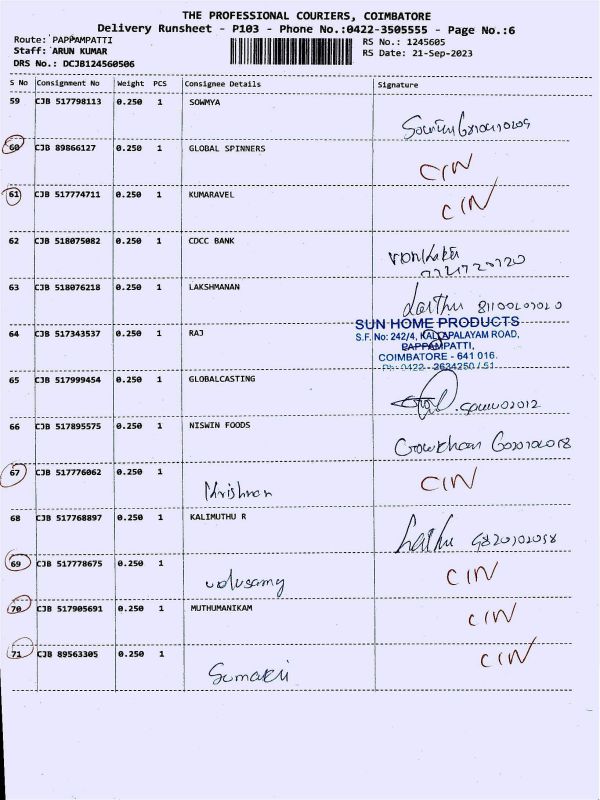 THE PROFESSIONAL COURIERS, COIMBATORE
Delivery Runsheet - P103 - Phone No.:0422-3505555 - Page No.:6
Route: PAPPAMPATTI
RS No.: 1245605
Staff: ARUN KUMAR
RS Date: 21-Sep-2023
DRS No.: DCJB124560506
S No Consignment No Weight PCS Consignee Details Signature
59 CJB 517798113 0.250 1 SOWMYA
60 CJB 89866127 0.250 1 GLOBAL SPINNERS CIN
61 CJB 517774711 0.250 1 KUMARAVEL CIN
62 CJB 518075082 0.250 1 CDCC BANK
63 CJB 518076218 0.250 1 LAKSHMANAN
SUN HOME PRODUCTS
64 CJB 517343537 0.250 1 RAJ S.F. No: 242/4, KALLAPALAYAM ROAD,
PAPPAMPATTI,
COIMBATORE - 641 016.
Ph: 0422 - 2634250 / 51
65 CJB 517999454 0.250 1 GLOBALCASTING
66 CJB 517895575 0.250 1 NISWIN FOODS
67 CJB 517776062 0.250 1 CIN
68 CJB 517768897 0.250 1 KALIMUTHU R
69 CJB 517778675 0.250 1 CIN
70 CJB 517905691 0.250 1 MUTHUMANIKAM CIN
71 CJB 89563305 0.250 1 CIN